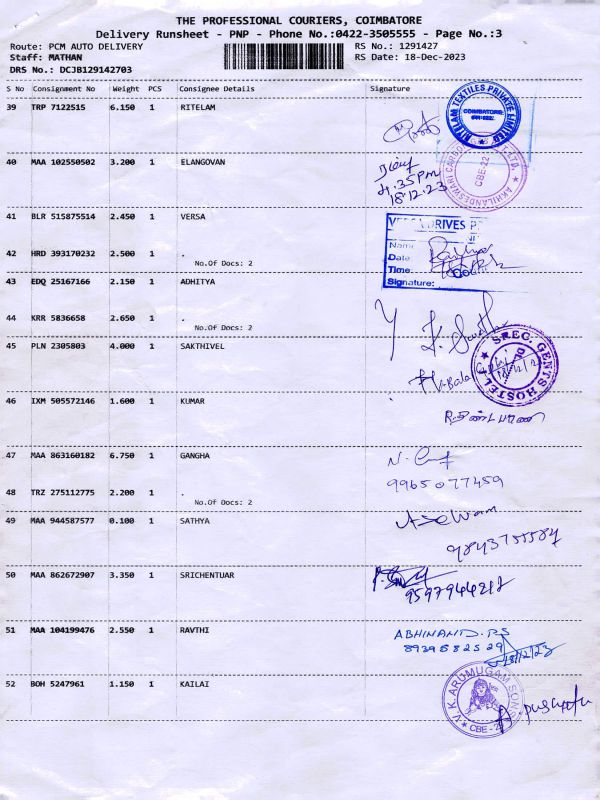 THE PROFESSIONAL COURIERS, COIMBATORE
Delivery Runsheet - PNP - Phone No.:0422-3505555 - Page No.:3
Route: PCM AUTO DELIVERY RS No.: 1291427
Staff: MATHAN RS Date: 18-Dec-2023
DRS No.: DCJB129142703
S No Consignment No Weight PCS Consignee Details Signature
39 TRP 7122515 6.150 1 RITELAM
RITELAM TEXTILES PRIVATE LIMITED
COIMBATORE
40 MAA 102550502 3.200 1 ELANGOVAN
4.35 PM
18.12.23
CBE-22
41 BLR 515875514 2.450 1 VERSA
Name
Date
Time:
Signature:
42 HRD 393170232 2.500 1 .
No.Of Docs: 2
43 EDQ 25167166 2.150 1 ADHITYA
44 KRR 5836658 2.650 1 .
No.Of Docs: 2
45 PLN 2305803 4.000 1 SAKTHIVEL
S.R.E.C. GENTS HOSTEL
46 IXM 505572146 1.600 1 KUMAR
47 MAA 863160182 6.750 1 GANGHA
9965077459
48 TRZ 275112775 2.200 1 .
No.Of Docs: 2
49 MAA 944587577 0.100 1 SATHYA
50 MAA 862672907 3.350 1 SRICHENTUAR
51 MAA 104199476 2.550 1 RAVTHI
ABHINAND.RS
8939582529
52 BOH 5247961 1.150 1 KAILAI
V.K.ARUMUGAM SONS
CBE-2